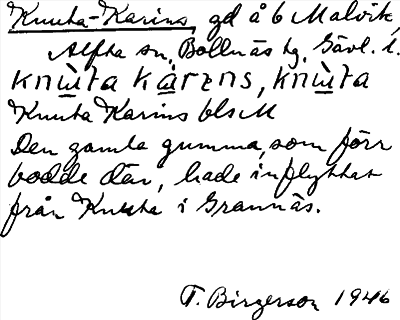 Knuta-Karins, gd å 6 Malvik,
Alfta sn, Bollnäs tg, Gävl. l.
knɯ̀ta kárɛns, knɯ̀ta
Knuta Karins bls M
Den gamla gumma, som förr
bodde där, hade inflyttat
från Knuta i Grannäs.
T. Birgerson 1946